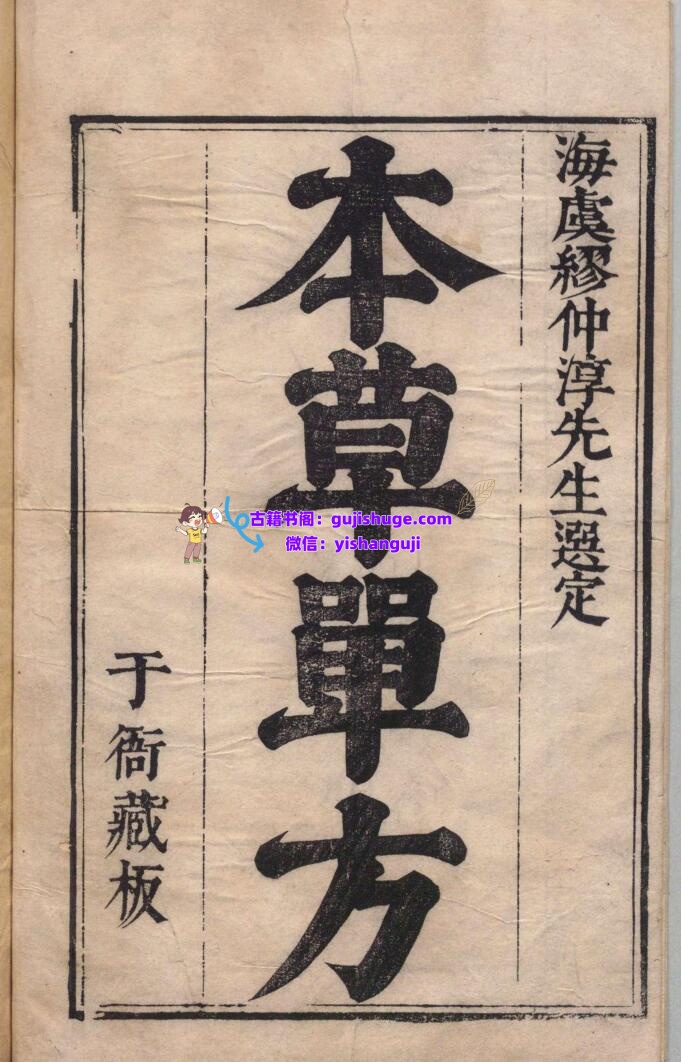 海虞繆仲淳先生選定
本草單方
于衙藏板
古籍书阁：gujishuge.com
微信：yishanguji